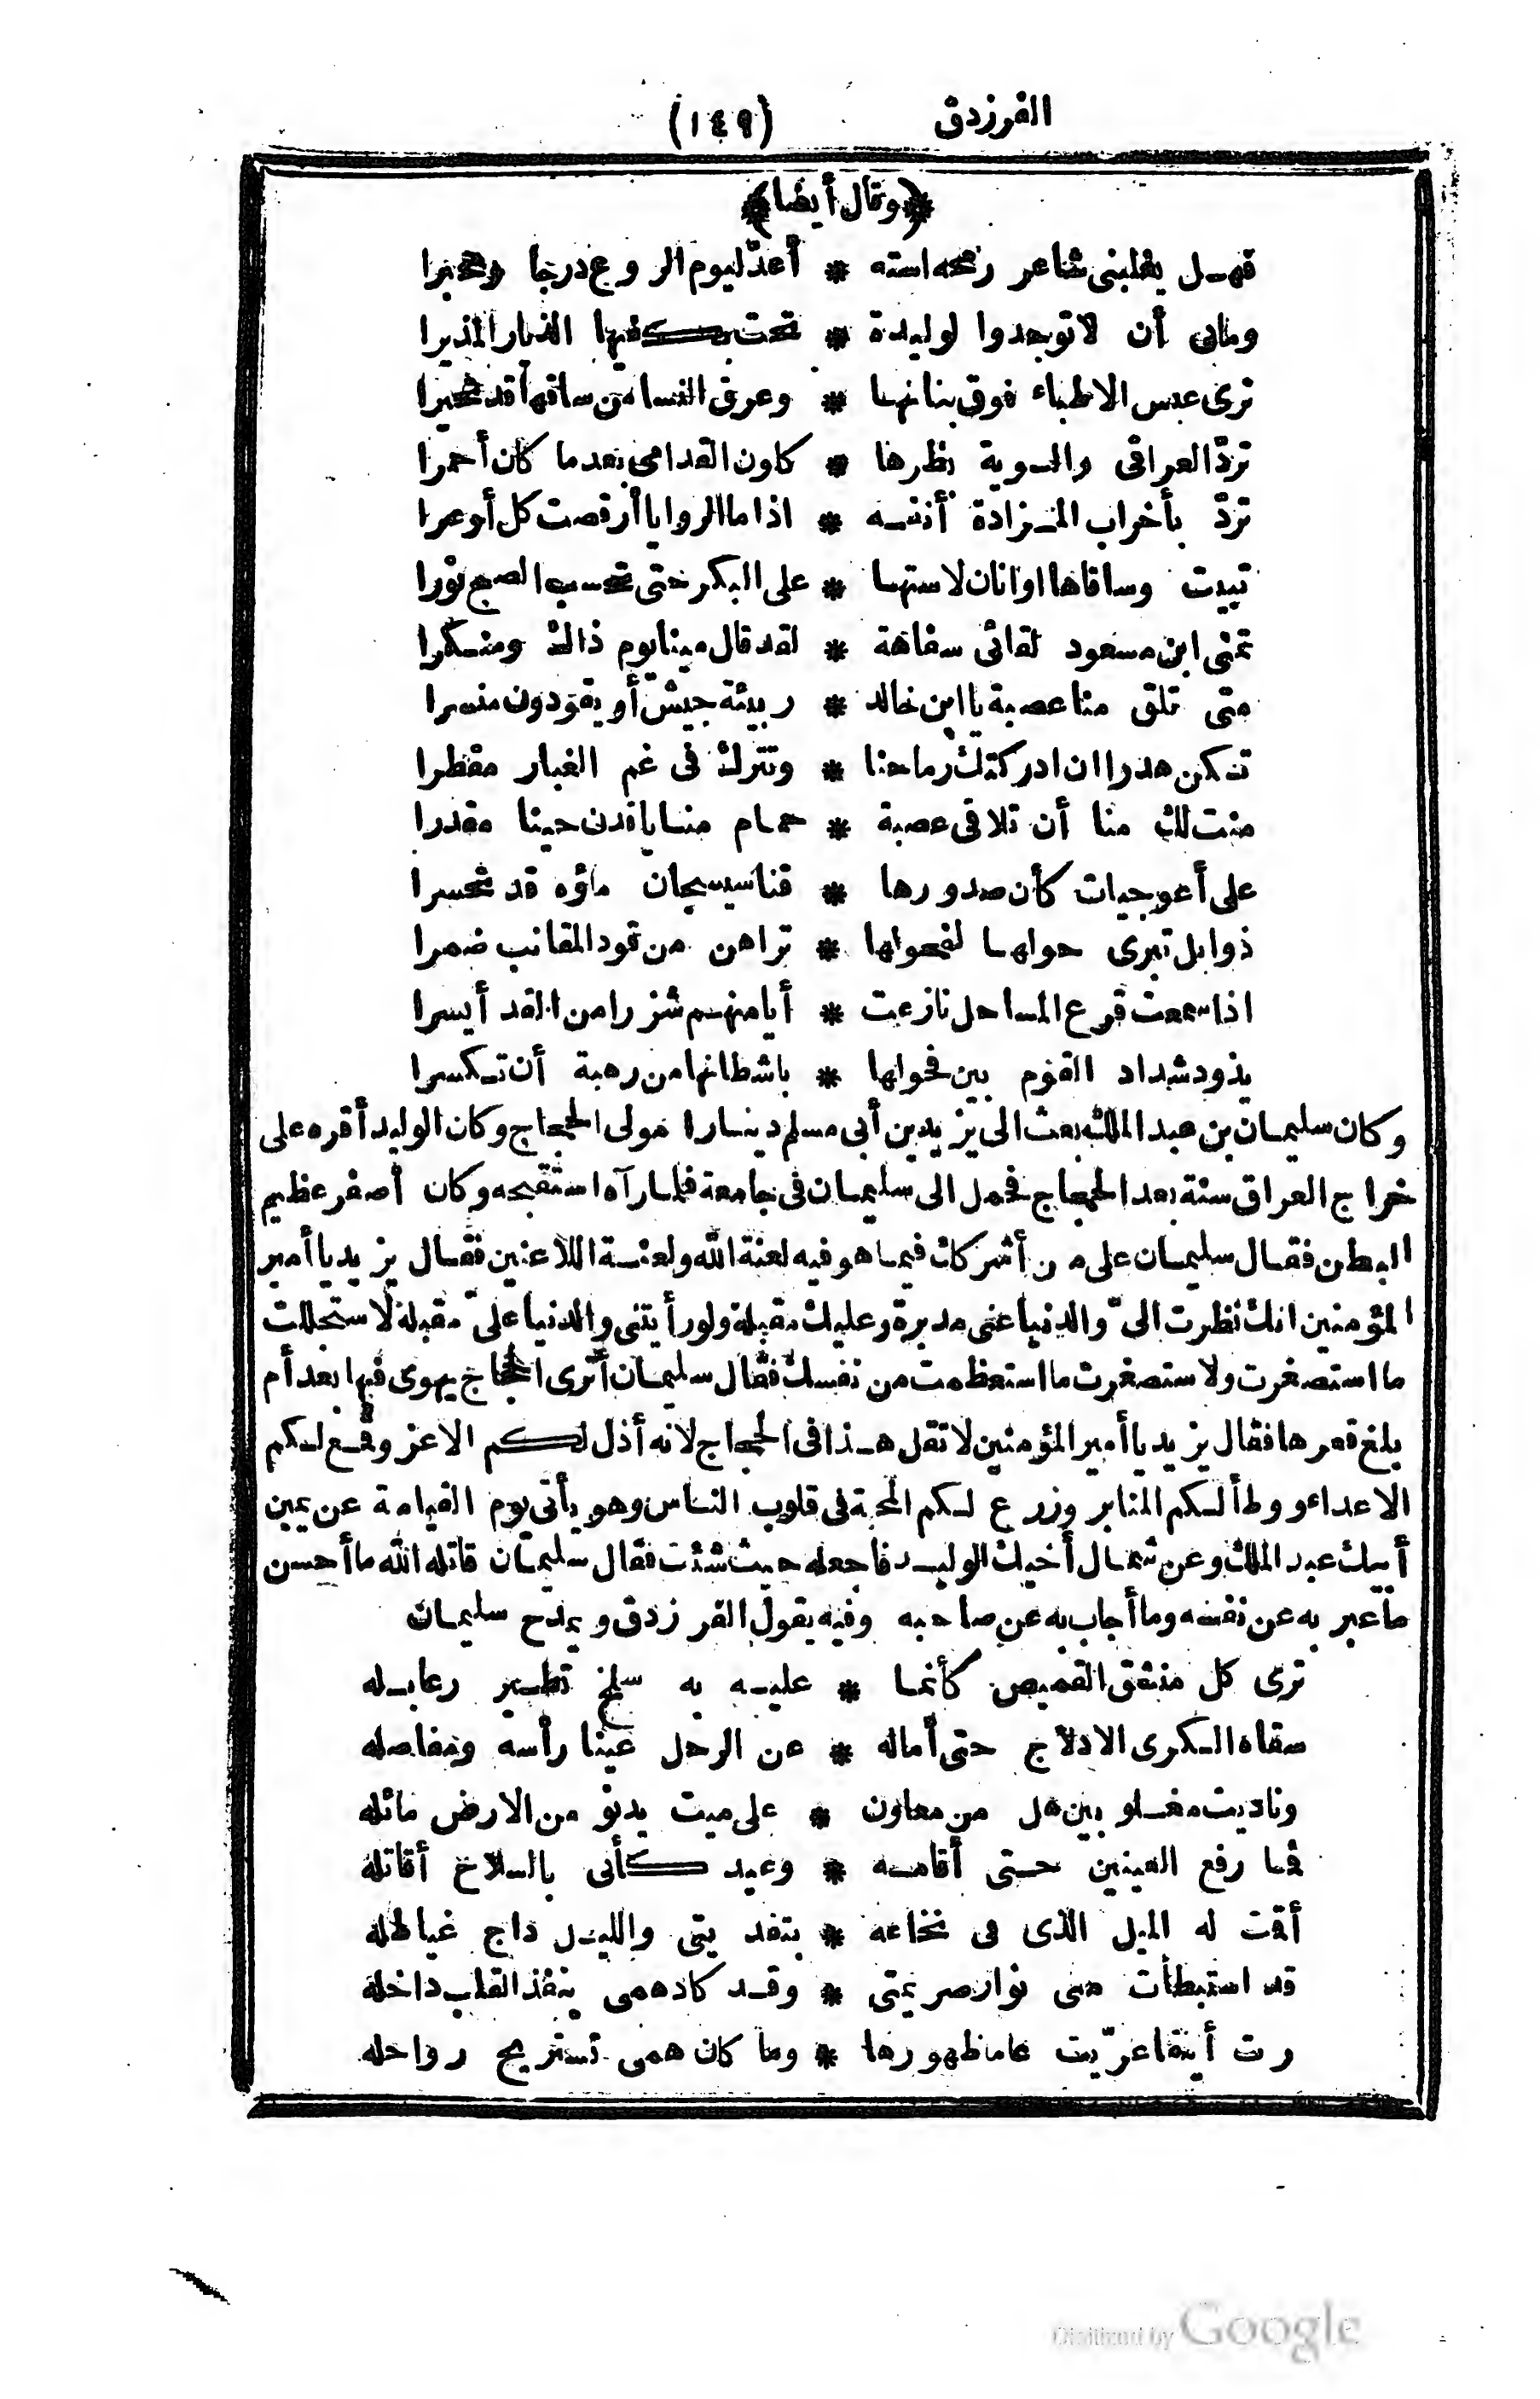 الفرزدق (١٤٩)
﴿وقال أيضا﴾
فهل يغلبنى شاعر رمحه استه * أعدّ ليوم الروع درجا ومجمرا
ومانى أن لا توجدوا لوليدة * تحت بكفيها الغبار المذيرا
ترى عبس الاطباء فوق بنانها * وعرق النسا من ساقها قد تحيرا
تردّ العراقى والسوية بظرها * كلون القدامى بعد ما كان أحمرا
تردّ بأخراب المزادة أنفسه * اذا ما الروايا أرقصت كل أوعرا
تبيت وساقاها اوانان لاستها * على البكر حتى تحسب الصبح نورا
تمنى ابن مسعود لقائى سفاهة * لقد قال مينا يوم ذاك ومنكرا
متى تلق منا عصبة يا ابن خالد * ربيئة جيش أو يقودون منسرا
تكن هدرا ان ادركتك رماحنا * وتترك فى غم الغبار مقطرا
منت لك منا أن تلاقى عصبة * حمام منايا قدن حينا مقدرا
على أعوجيات كأن صدورها * قنا سيسجان ماؤه قد تحسرا
ذوابل تبرى حولها لفحولها * تراهن من قود المقانب ضمرا
اذا سمعت قرع المساحل نازعت * أيامنهم شزرا من القد أيسرا
يذود شداد القوم بين فحولها * باشطانها من رهبة أن تكسرا
وكان سليمان بن عبد الملك بعث الى يزيد بن أبى مسلم دينارا مولى الحجاج وكان الوليد أقره على
خراج العراق سنة بعد الحجاج فحمل الى سليمان فى جامعة فلما رآه استقبحه وكان أصفر عظيم
البطن فقال سليمان على من أشركك فيما هو فيه لعنة الله ولعنة اللاعنين فقال يزيد يا أمير
المؤمنين انك نظرت الىّ والدنيا عنى مدبرة وعليك مقبلة ولو رأيتنى والدنيا علىّ مقبلة لاستجللت
ما استصغرت ولاستصغرت ما استعظمت من نفسك فقال سليمان أترى الحجاج يهوى فيها بعد أم
بلغ قعرها فقال يزيد يا أمير المؤمنين لا تقل هذا فى الحجاج لانه أذل لكم الاعز وقمع لكم
الاعداء ووطأ لكم المنابر وزرع لكم المحبة فى قلوب الناس وهو يأتى يوم القيامة عن يمين
أبيك عبد الملك وعن شمال أخيك الوليد فاجعله حيث شئت فقال سليمان قاتله الله ما أحسن
ما عبر به عن نفسه وما أجاب به عن صاحبه وفيه يقول الفرزدق ويمدح سليمان
ترى كل منشق القميص كأنما * عليه به سلخ تطير رعابله
سقاه الكرى الادلاج حتى أماله * عن الرحل عينا رأسه ومفاصله
وناديت مغلوبين هل من معاون * على ميت يدنو من الارض مائله
فما رفع العينين حتى أقامه * وعيد كأنى بالسلاح أقاتله
أقت له الميل الذى فى نخاعه * بتفديتى والليل داج غياطله
قد استبطأت منى نوار صريمتى * وقد كاد همى ينفذ القلب داخله
رت أينقا عرّيت عاما ظهورها * وما كان همى تستريح رواحله
Digitized by Google